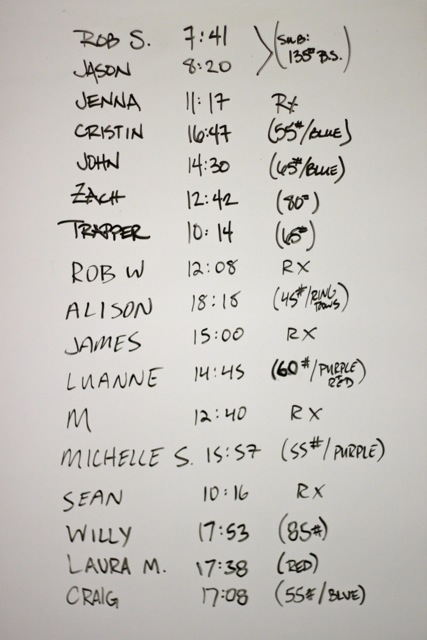 ROB S. 7:41 (SUB:
JASON 8:20 135# B.S.)
JENNA 11:17 RX
CRISTIN 16:47 (55#/BLUE)
JOHN 14:30 (65#/BLUE)
ZACH 12:42 (80#)
TRAPPER 10:14 (65#)
ROB W 12:08 RX
ALISON 18:18 (45#/RING ROWS)
JAMES 15:00 RX
LUANNE 14:45 (60#/PURPLE RED)
M 12:40 RX
MICHELLE S. 15:57 (55#/PURPLE)
SEAN 10:16 RX
WILLY 17:53 (85#)
LAURA M. 17:38 (RED)
CRAIG 17:08 (55#/BLUE)